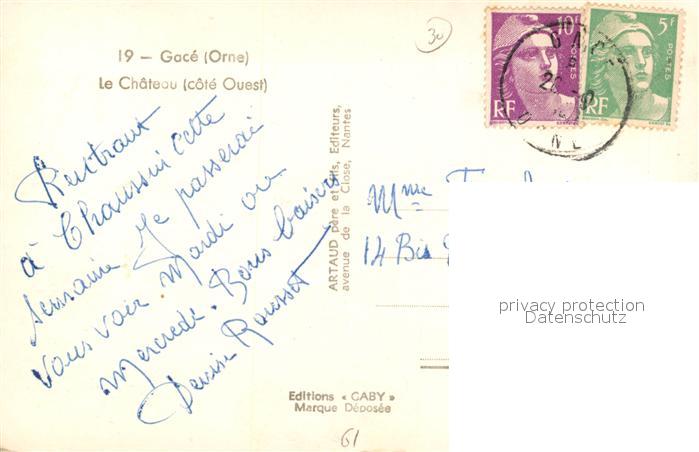 19 — Gacé (Orne)
Le Château (côté Ouest)
Rentrant
à Chaussin cette
semaine je passerai
vous voir Mardi ou
Mercredi. Bons baisers
Denise Rousset
ARTAUD père et fils, Editeurs,
avenue de la Close, Nantes
Editions « GABY »
Marque Déposée
61
30
10F
POSTES
RF
5F
POSTES
RF
Mme
14 Bis
privacy protection
Datenschutz